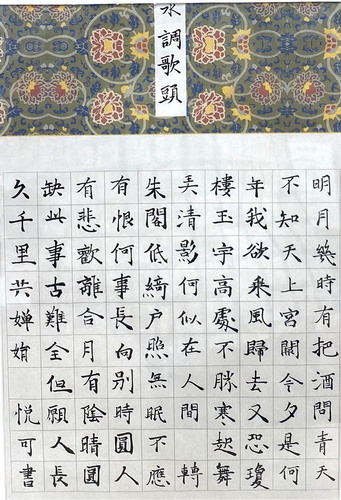 水調歌頭
明月幾時有把酒問青天
不知天上宮闕今夕是何
年我欲乘風歸去又恐瓊
樓玉宇高處不勝寒起舞
弄清影何似在人間 轉
朱閣低綺戶照無眠不應
有恨何事長向別時圓人
有悲歡離合月有陰晴圓
缺此事古難全但願人長
久千里共嬋娟 悅可書